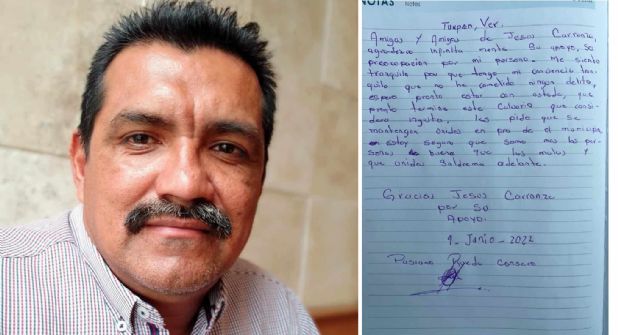 NOTAS Notes
Tuxpan, Ver.
Amigos y Amigas de Jesus Carranza,
agradezco infinita mente su apoyo, su
preocupacion por mi persona. Me siento
tranquilo por que tengo mi conciencia tran
quila que no he cometido ningun delito,
espero pronto estar con ustedes, que
pronto termine este Calvario que consi
dero injusto, les pido que se
mantengan unidos en pro de el municipio
estoy seguro que somos mas las per
sonas buenas que las malas y
que unidos Saldremos adelante.
Gracias Jesus Carranza
por su
Apoyo.
1 - Junio - 2022
Pasiano Rueda Canseco